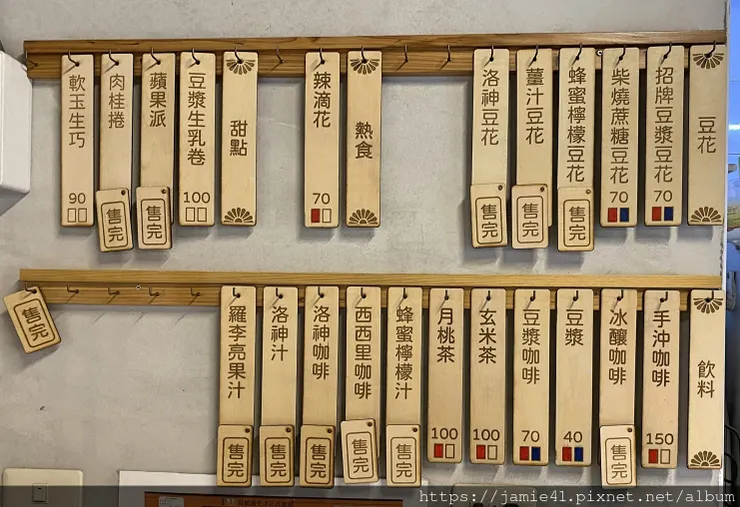 豆花
招牌豆漿豆花
70
柴燒蔗糖豆花
70
蜂蜜檸檬豆花
售完
薑汁豆花
售完
洛神豆花
售完
熱食
辣滴花
70
甜點
豆漿生乳卷
100
蘋果派
售完
肉桂捲
售完
軟玉生巧
90
飲料
手沖咖啡
150
冰釀咖啡
售完
豆漿
40
豆漿咖啡
70
玄米茶
100
月桃茶
100
蜂蜜檸檬汁
售完
西西里咖啡
售完
洛神咖啡
售完
洛神汁
售完
羅李亮果汁
售完
售完
https://jamie41.pixnet.net/album